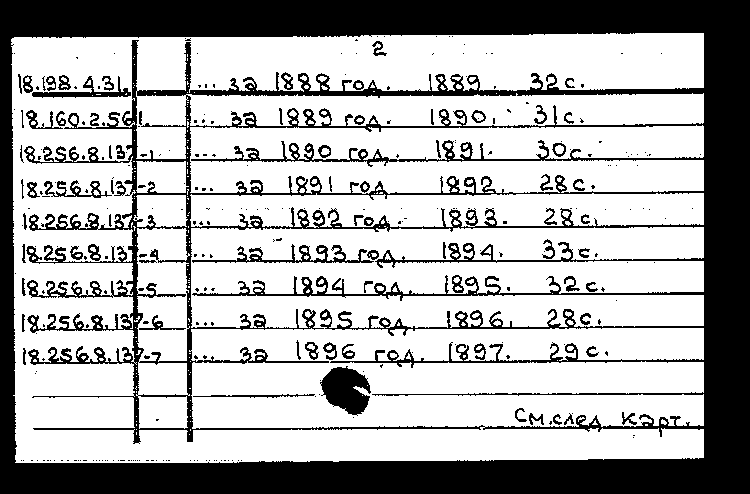 2
18.198.4.31. ... за 1888 год. 1889. 32с.
18.160.2.561. ... за 1889 год. 1890. 31с.
18.256.8.137-1 ... за 1890 год. 1891. 30с.
18.256.8.137-2 ... за 1891 год 1892. 28с.
18.256.8.137-3 ... за 1892 год. 1893. 28с.
18.256.8.137-4 ... за 1893 год. 1894. 33с.
18.256.8.137-5 ... за 1894 год. 1895. 32с.
18.256.8.137-6 ... за 1895 год. 1896. 28с.
18.256.8.137-7 ... за 1896 год. 1897. 29с.
См.след карт.